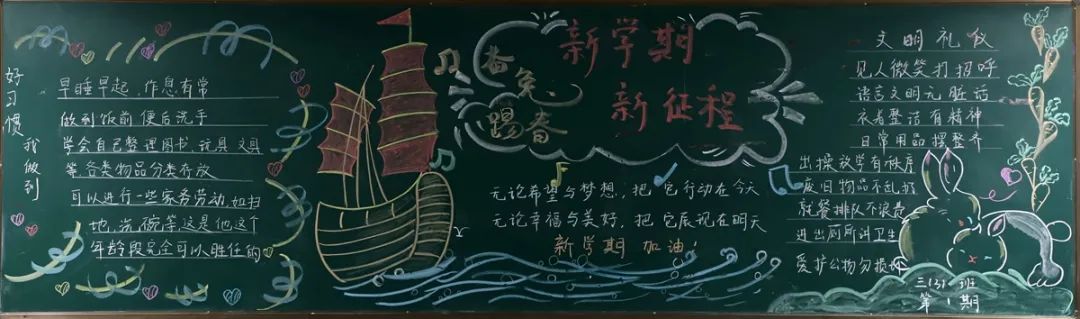 好习惯
我做到
早睡早起 作息有常
做到饭前便后洗手
学会自己整理图书、玩具、文具
等各类物品分类存放
可以进行一些家务劳动,如扫
地、洗碗等,这是他这个
年龄段完全可以胜任的
奋兔、
踢春
新学期
新征程
无论希望与梦想,把它行动在今天
无论幸福与美好,把它展现在明天
新学期 加油!
文明礼仪
见人微笑打招呼
语言文明无脏话
衣着整洁有精神
日常用品摆整齐
出操放学有秩序
废旧物品不乱扔
就餐排队不浪费
进出厕所讲卫生
爱护公物勿损坏
三(3)班
第1期